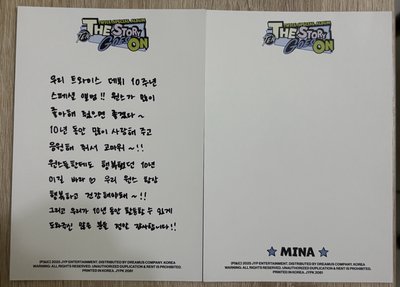 THE STORY
GOES ON
우리 트와이스 데뷔 10주년
스페셜 앨범!! 원스가 많이
좋아해 줬으면 좋겠다~
10년 동안 많이 사랑해 주고
응원해 줘서 고마워~!!
원스들한테도 행복했던 10년
이길 바라 우리 원스 항상
행복하고 건강해야돼~!!
그리고 우리가 10년 동안 활동할 수 있게
도와주신 많은 분들 정말 감사합니다!!
THE STORY
GOES ON
MINA
(P)&(C) 2025 JYP ENTERTAINMENT. DISTRIBUTED BY DREAMUS COMPANY, KOREA
WARNING: ALL RIGHTS RESERVED. UNAUTHORIZED DUPLICATION & RENT IS PROHIBITED.
PRINTED IN KOREA. JYPK 2081
(P)&(C) 2025 JYP ENTERTAINMENT. DISTRIBUTED BY DREAMUS COMPANY, KOREA
WARNING: ALL RIGHTS RESERVED. UNAUTHORIZED DUPLICATION & RENT IS PROHIBITED.
PRINTED IN KOREA. JYPK 2081